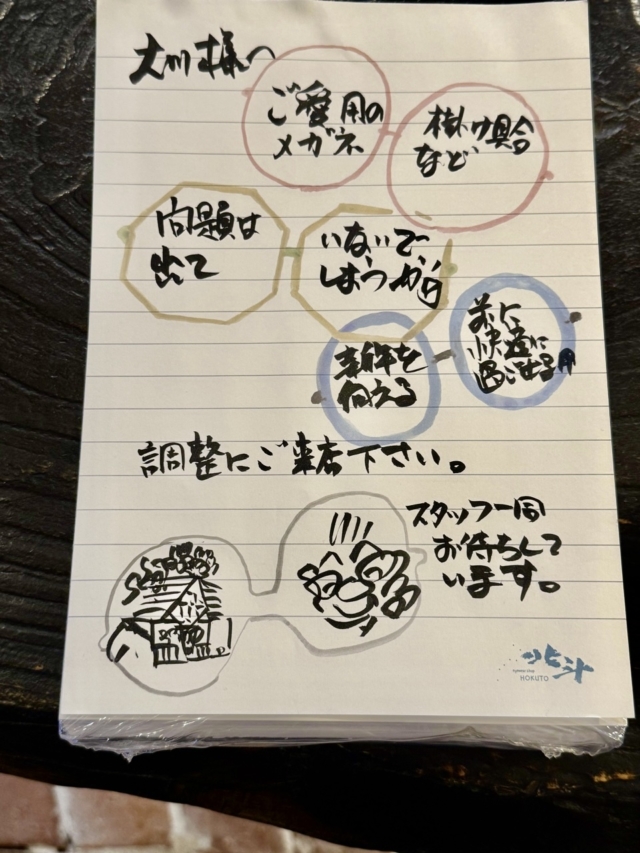 大川様へ
ご愛用の
メガネ
掛け具合
など
問題は
出て
いないで
しょうか
新年を
迎える
前に
快適に
過ごせる用
調整にご来店下さい。
スタッフ一同
お待ちして
います。
北斗
HOKUTO